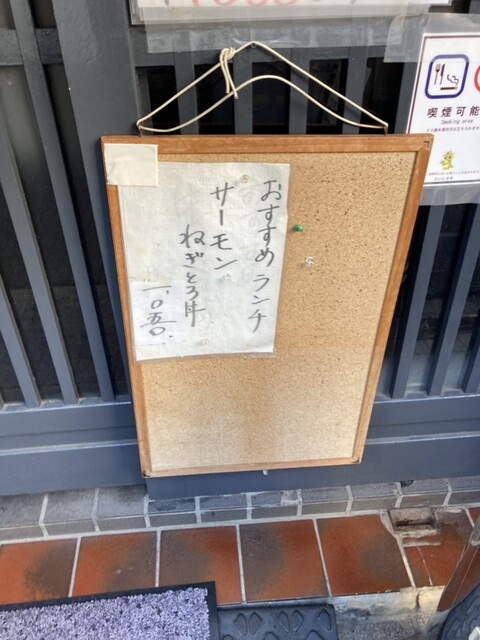 おすすめランチ
サーモン
ねぎとろ丼
一、〇五〇、
喫煙可能
Smoking area